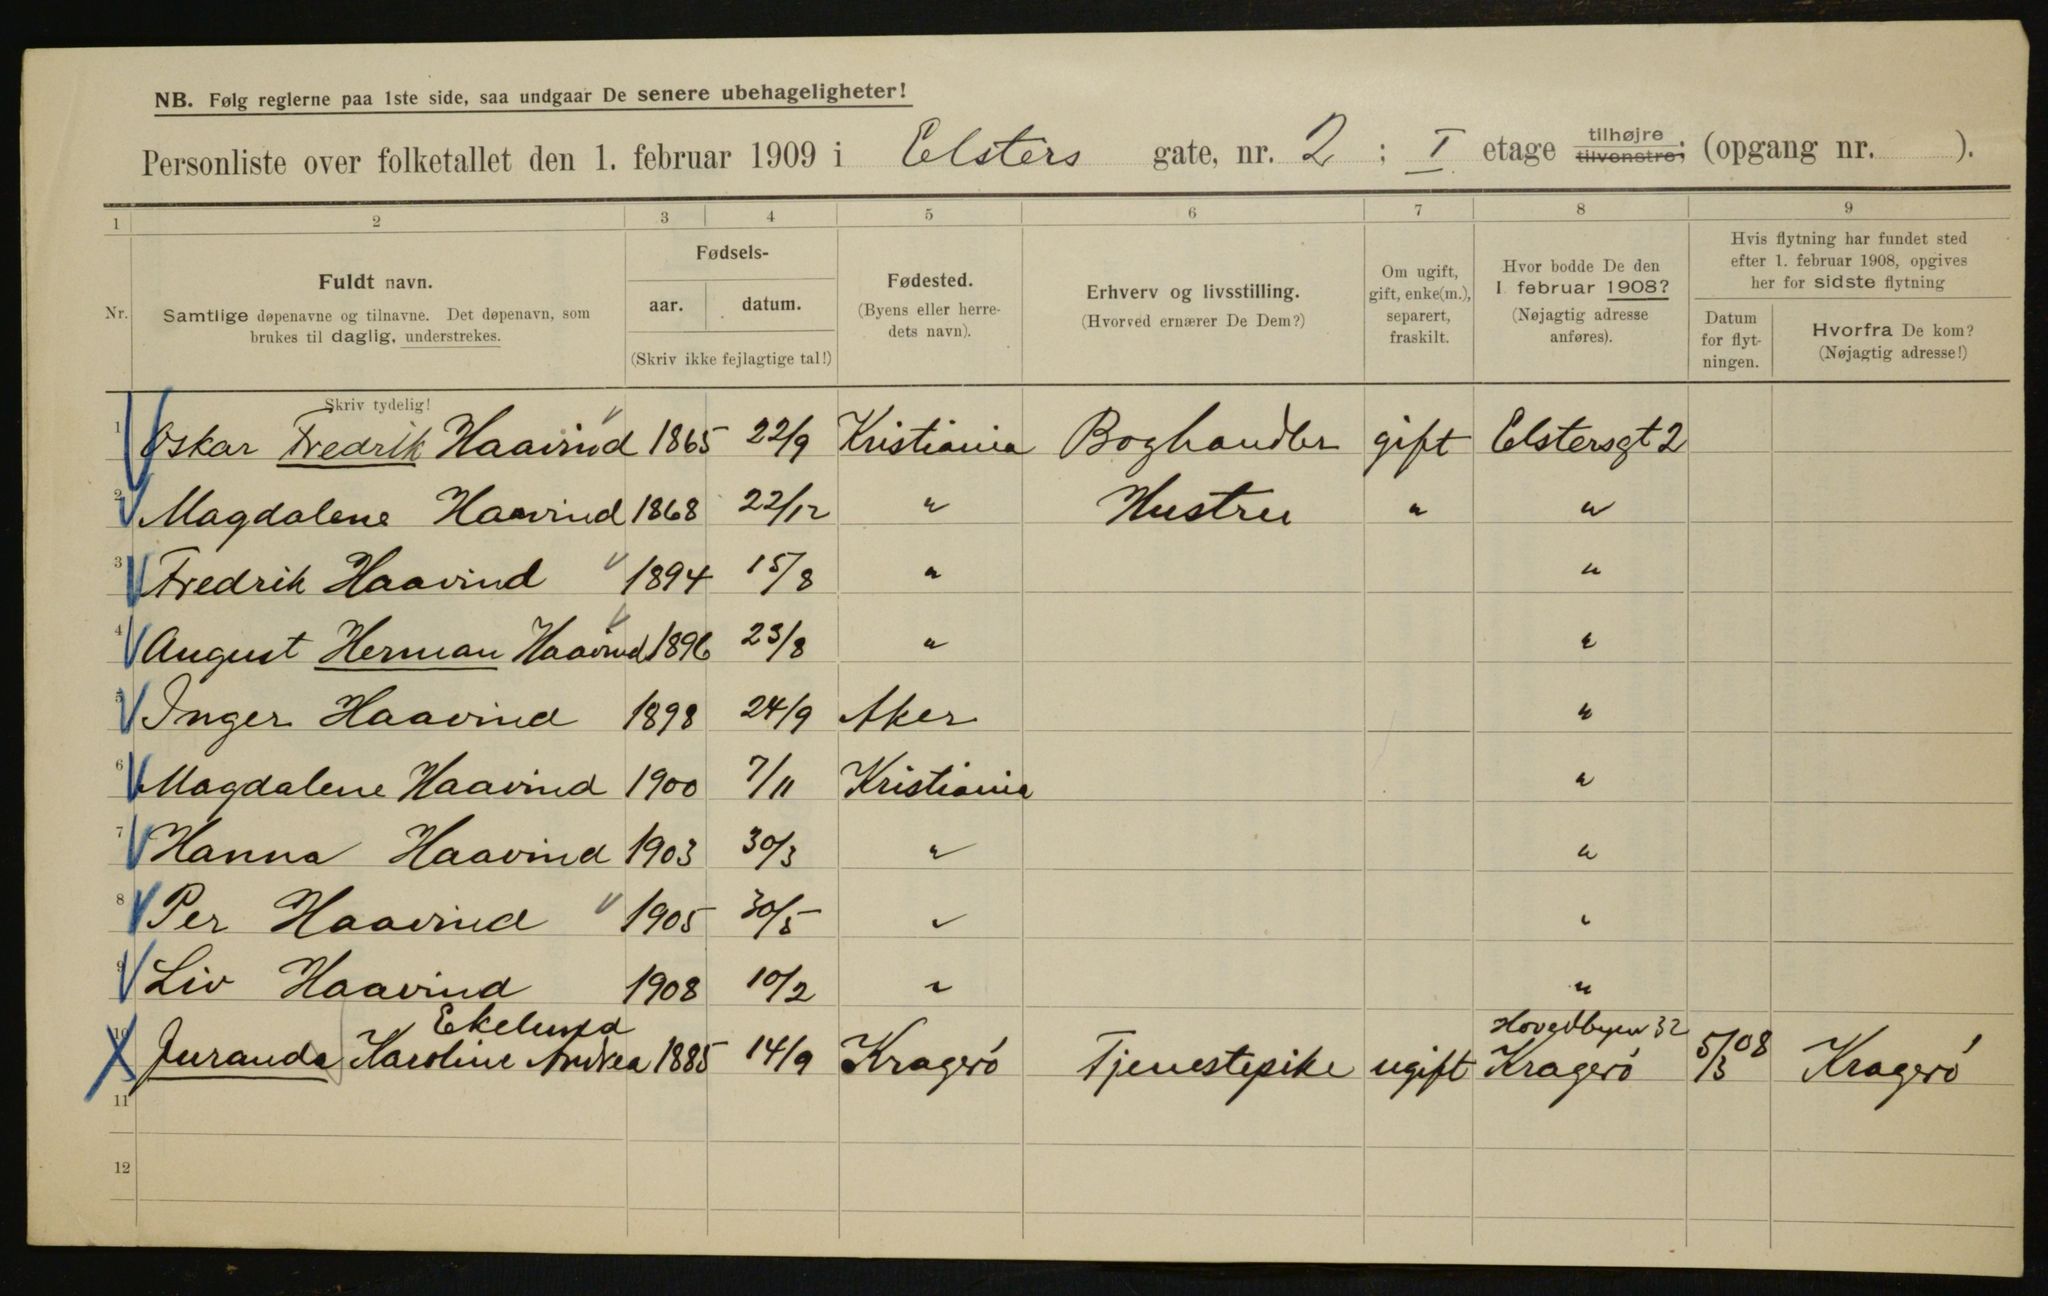 NB. Følg reglerne paa 1ste side, saa undgaar De senere ubehageligheter!
Personliste over folketallet den 1. februar 1909 i Elsters gate, nr. 2 ; I etage tilhøjre tilvenstre; (opgang nr. ).
1 2 3 4 5 6 7 8 9
Nr.
Fuldt navn.
Samtlige døpenavne og tilnavne. Det døpenavn, som
brukes til daglig, understrekes.
Fødsels-
aar. datum.
(Skriv ikke fejlagtige tal!)
Fødested.
(Byens eller herre-
dets navn).
Erhverv og livsstilling.
(Hvorved ernærer De Dem?)
Om ugift,
gift, enke(m.),
separert,
fraskilt.
Hvor bodde De den
1 februar 1908?
(Nøjagtig adresse
anføres).
Hvis flytning har fundet sted
efter 1. februar 1908, opgives
her for sidste flytning
Datum
for flyt-
ningen.
Hvorfra De kom?
(Nøjagtig adresse!)
Skriv tydelig!
1 Oskar Fredrik Haavind 1865 22/9 Kristiania Boghandler gift Elstersgt 2
2 Magdalene Haavind 1868 22/12 " Hustru " "
3 Fredrik Haavind 1894 15/8 " "
4 August Herman Haavind 1896 23/8 " "
5 Inger Haavind 1898 24/9 Aker "
6 Magdalene Haavind 1900 7/11 Kristiania "
7 Hanna Haavind 1903 30/3 " "
8 Per Haavind 1905 30/5 " "
9 Liv Haavind 1908 10/2 " "
Ekelund Hovedbyen 32
10 Juranda Karoline Andrea 1885 14/9 Kragerö Tjenestepike ugift Kragerö 5/3 08 Kragerö
11
12